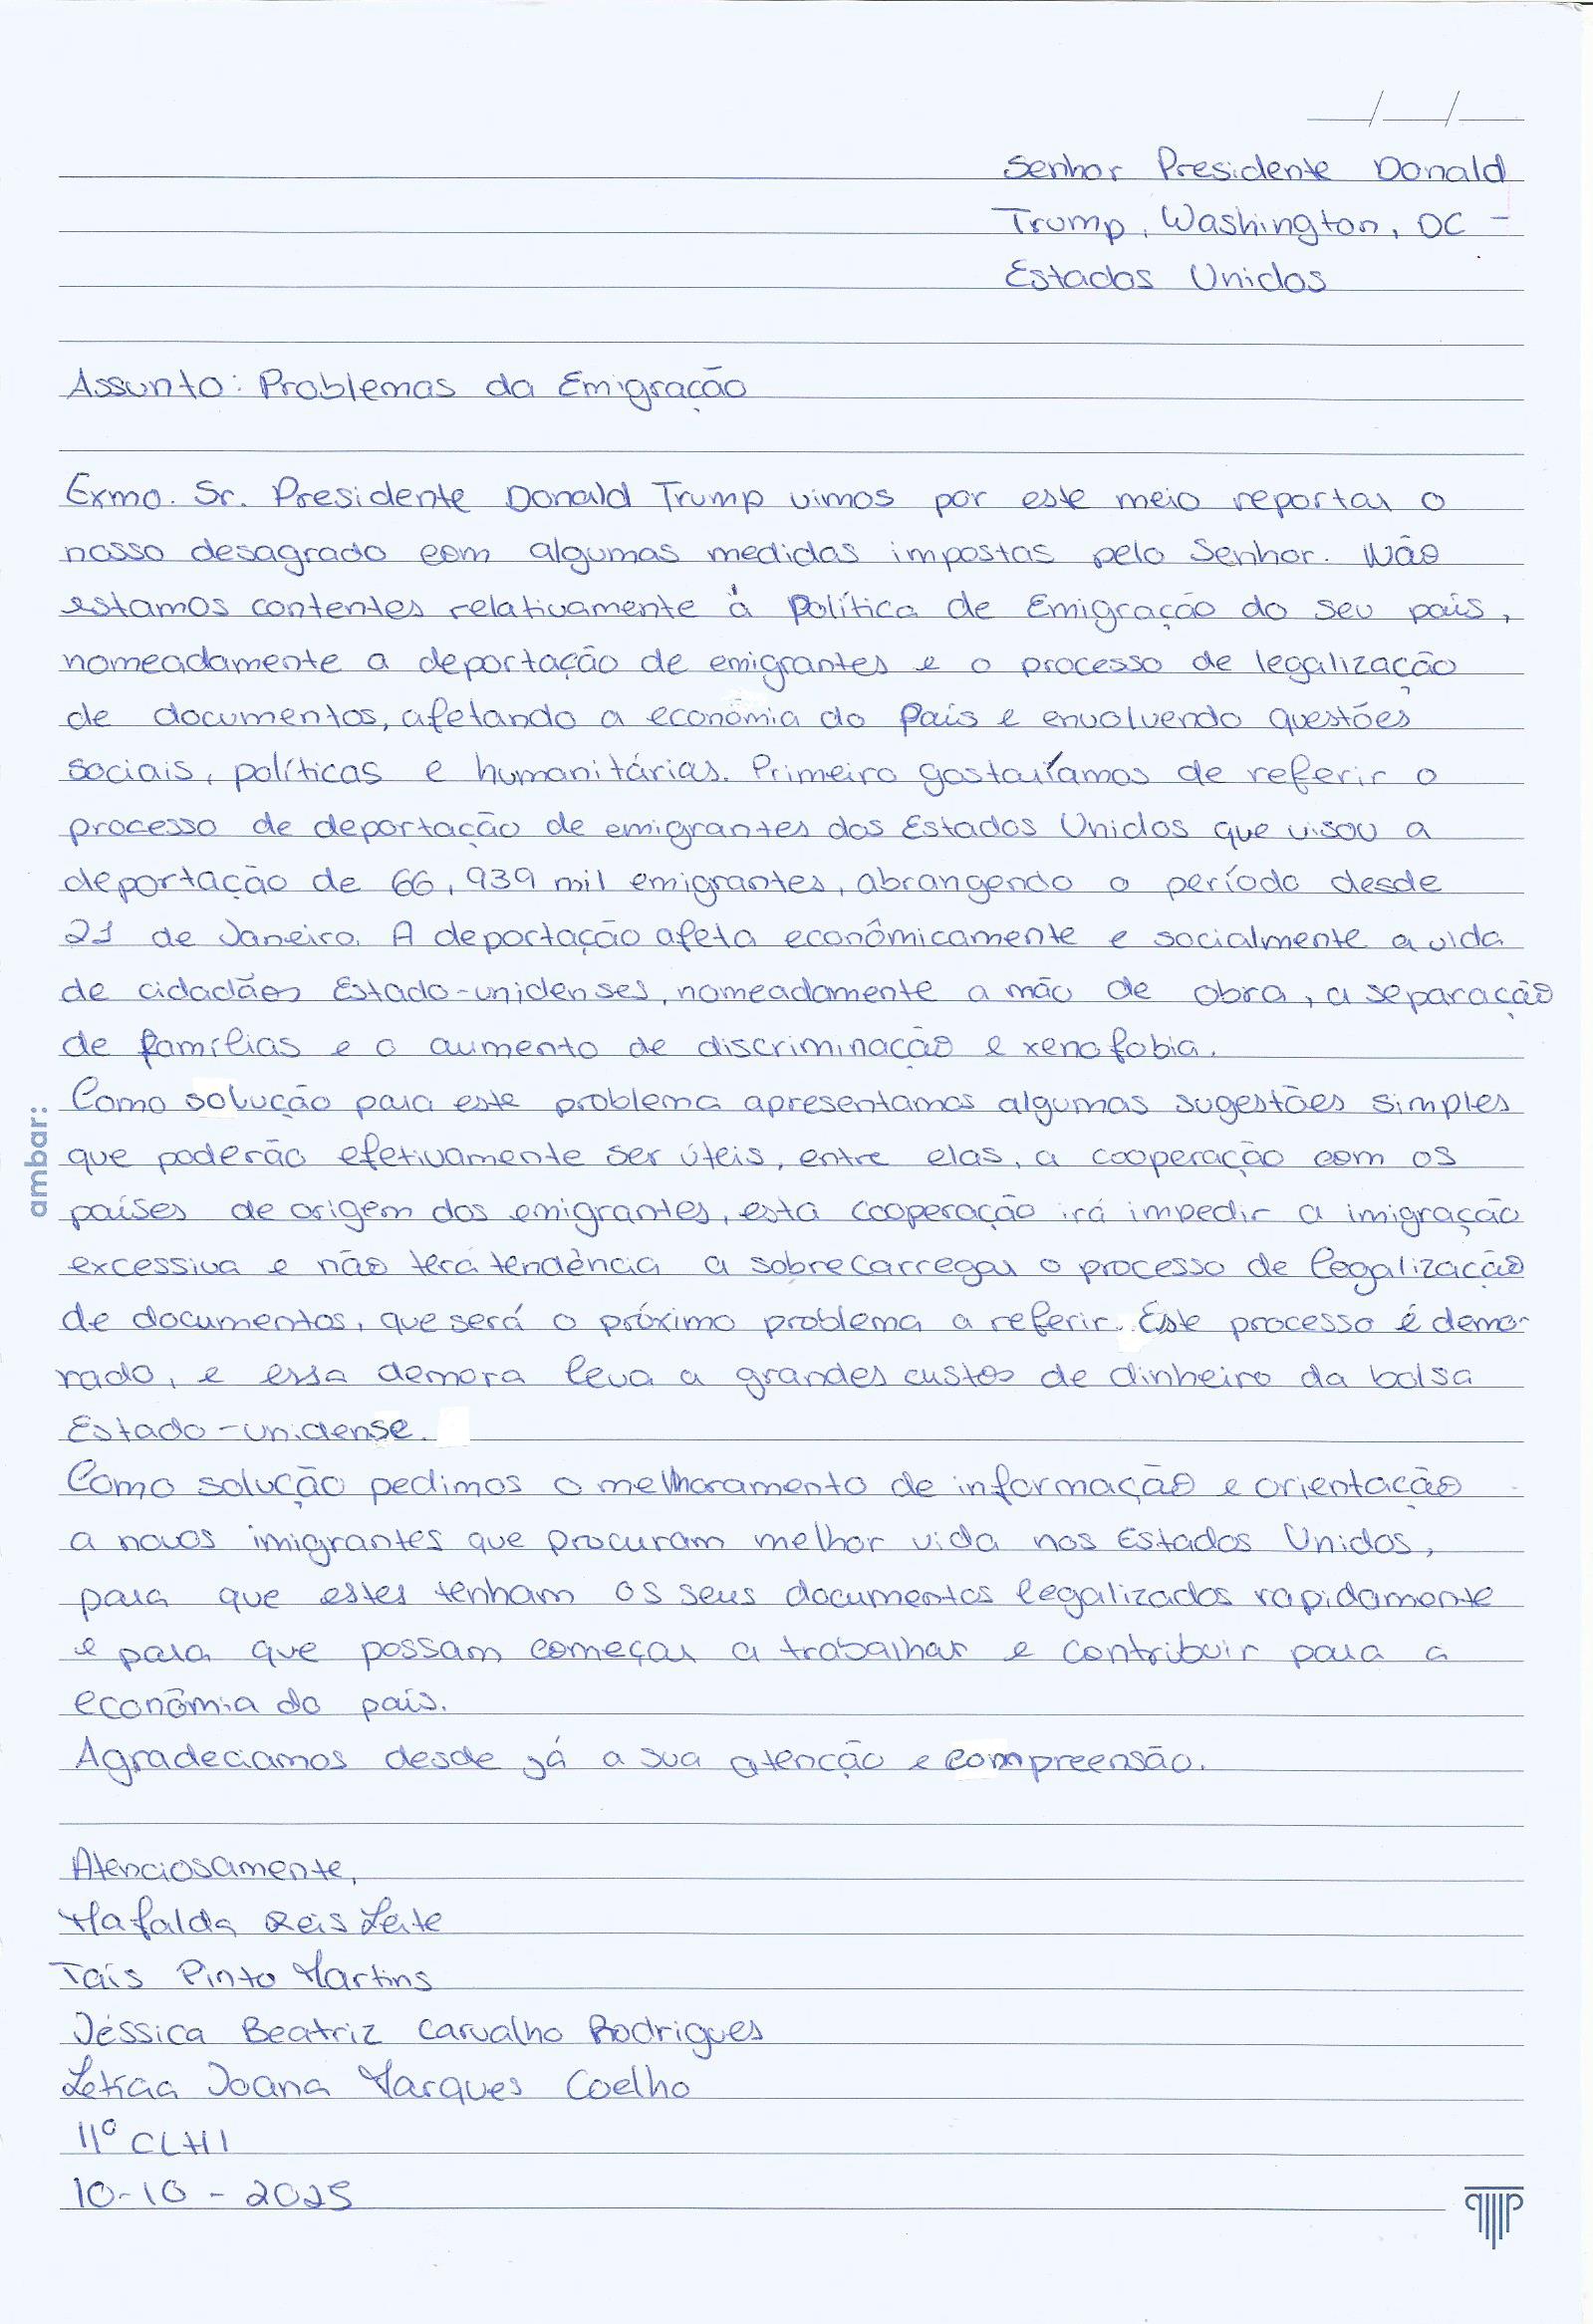 Senhor Presidente Donald
Trump, Washington, DC -
Estados Unidos
Assunto: Problemas da Emigração
Exmo. Sr. Presidente Donald Trump vimos por este meio reportar o
nosso desagrado com algumas medidas impostas pelo Senhor. Não
estamos contentes relativamente à Política de Emigração do seu país,
nomeadamente a deportação de emigrantes e o processo de legalização
de documentos, afetando a econômia do País e envolvendo questões
sociais, políticas e humanitárias. Primeiro gostaríamos de referir o
processo de deportação de emigrantes dos Estados Unidos que visou a
deportação de 66,939 mil emigrantes, abrangendo o período desde
21 de Janeiro. A deportação afeta econômicamente e socialmente a vida
de cidadãos Estado-unidenses, nomeadamente a mão de obra, a separação
de famílias e o aumento de discriminação e xenofobia.
Como solução para este problema apresentamos algumas sugestões simples
que poderão efetivamente ser úteis, entre elas, a cooperação com os
países de origem dos emigrantes, esta cooperação irá impedir a imigração
excessiva e não terá tendência a sobrecarregar o processo de legalização
de documentos, que será o próximo problema a referir. Este processo é demo-
rado, e essa demora leva a grandes custos de dinheiro da bolsa
Estado-unidense.
Como solução pedimos o melhoramento de informação e orientação
a novos imigrantes que procuram melhor vida nos Estados Unidos,
para que estes tenham os seus documentos legalizados rapidamente
e para que possam começar a trabalhar e contribuir para a
econômia do país.
Agradeciamos desde já a sua atenção e compreensão.
Atenciosamente,
Mafalda Reis Leite
Taís Pinto Martins
Jéssica Beatriz Carvalho Rodrigues
Letícia Joana Marques Coelho
11º CLH1
10-10-2025
ambar: